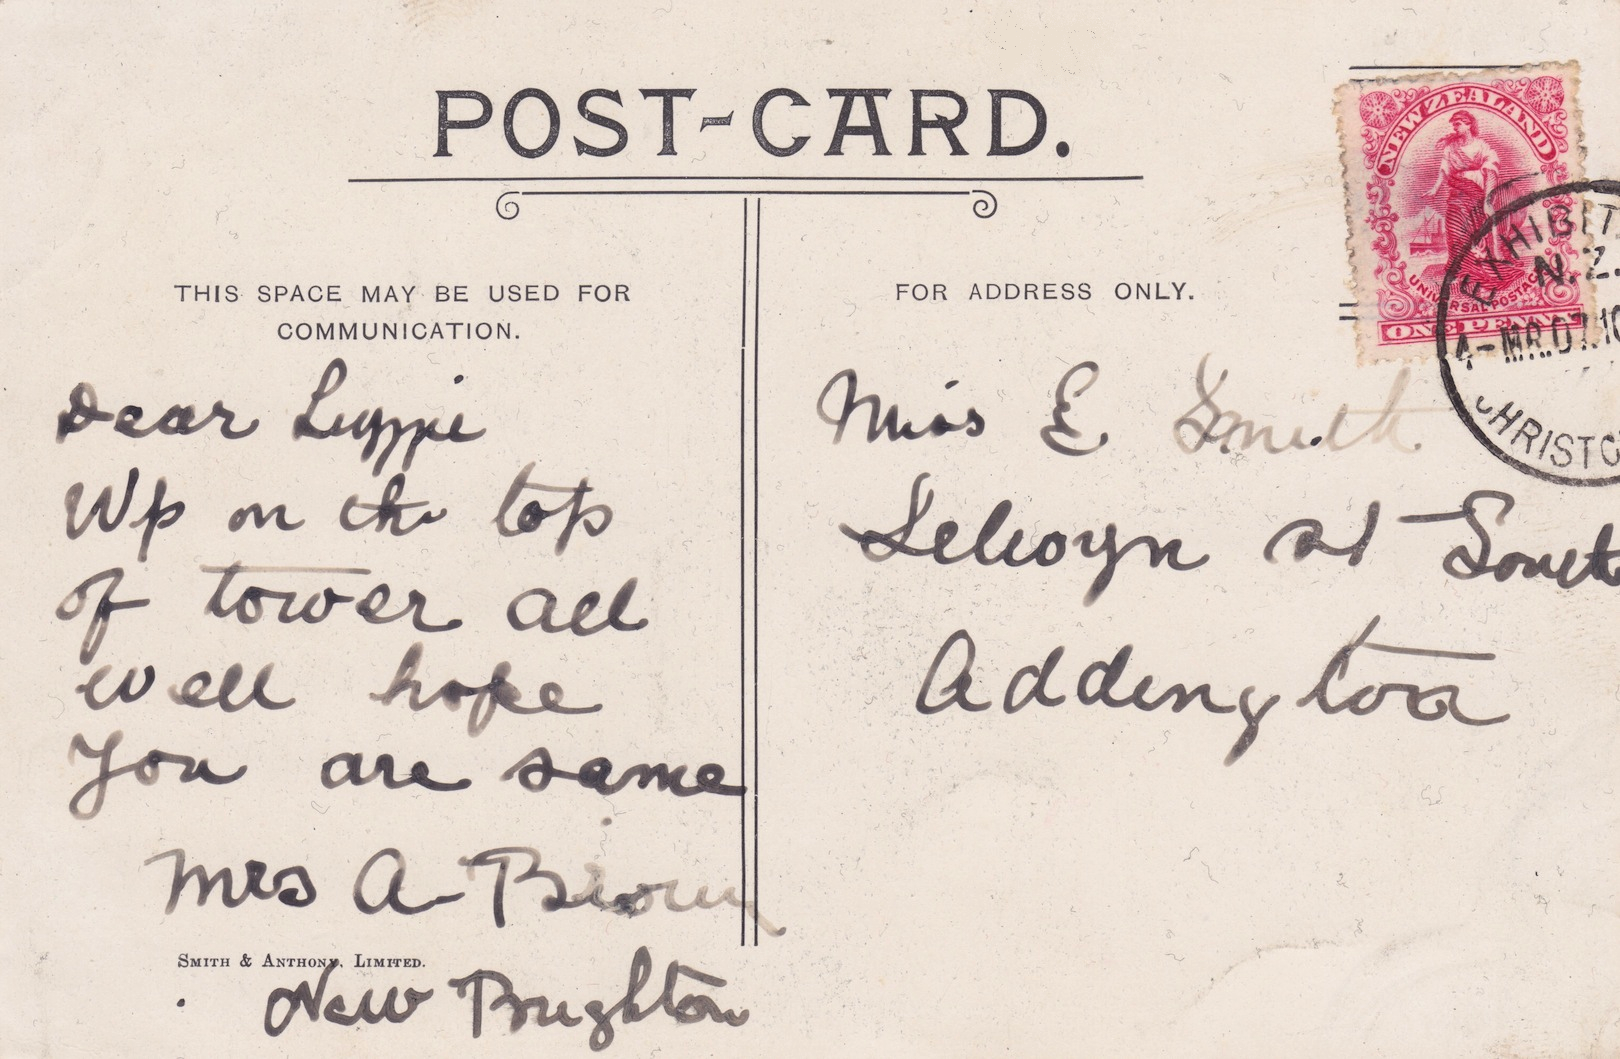 POST-CARD.
THIS SPACE MAY BE USED FOR
COMMUNICATION.
Dear
Up on the top
of tower all
well hope
You are same
Mrs A. Brown
SMITH & ANTHONY, LIMITED.
New Brighton
FOR ADDRESS ONLY.
Miss E Smith
Selwoyn st South
Addington
NEW ZEALAND
UNIVERSAL POSTAGE
ONE PENNY
EXHIBIT
N.Z.
4-MR.07.10
CHRISTC